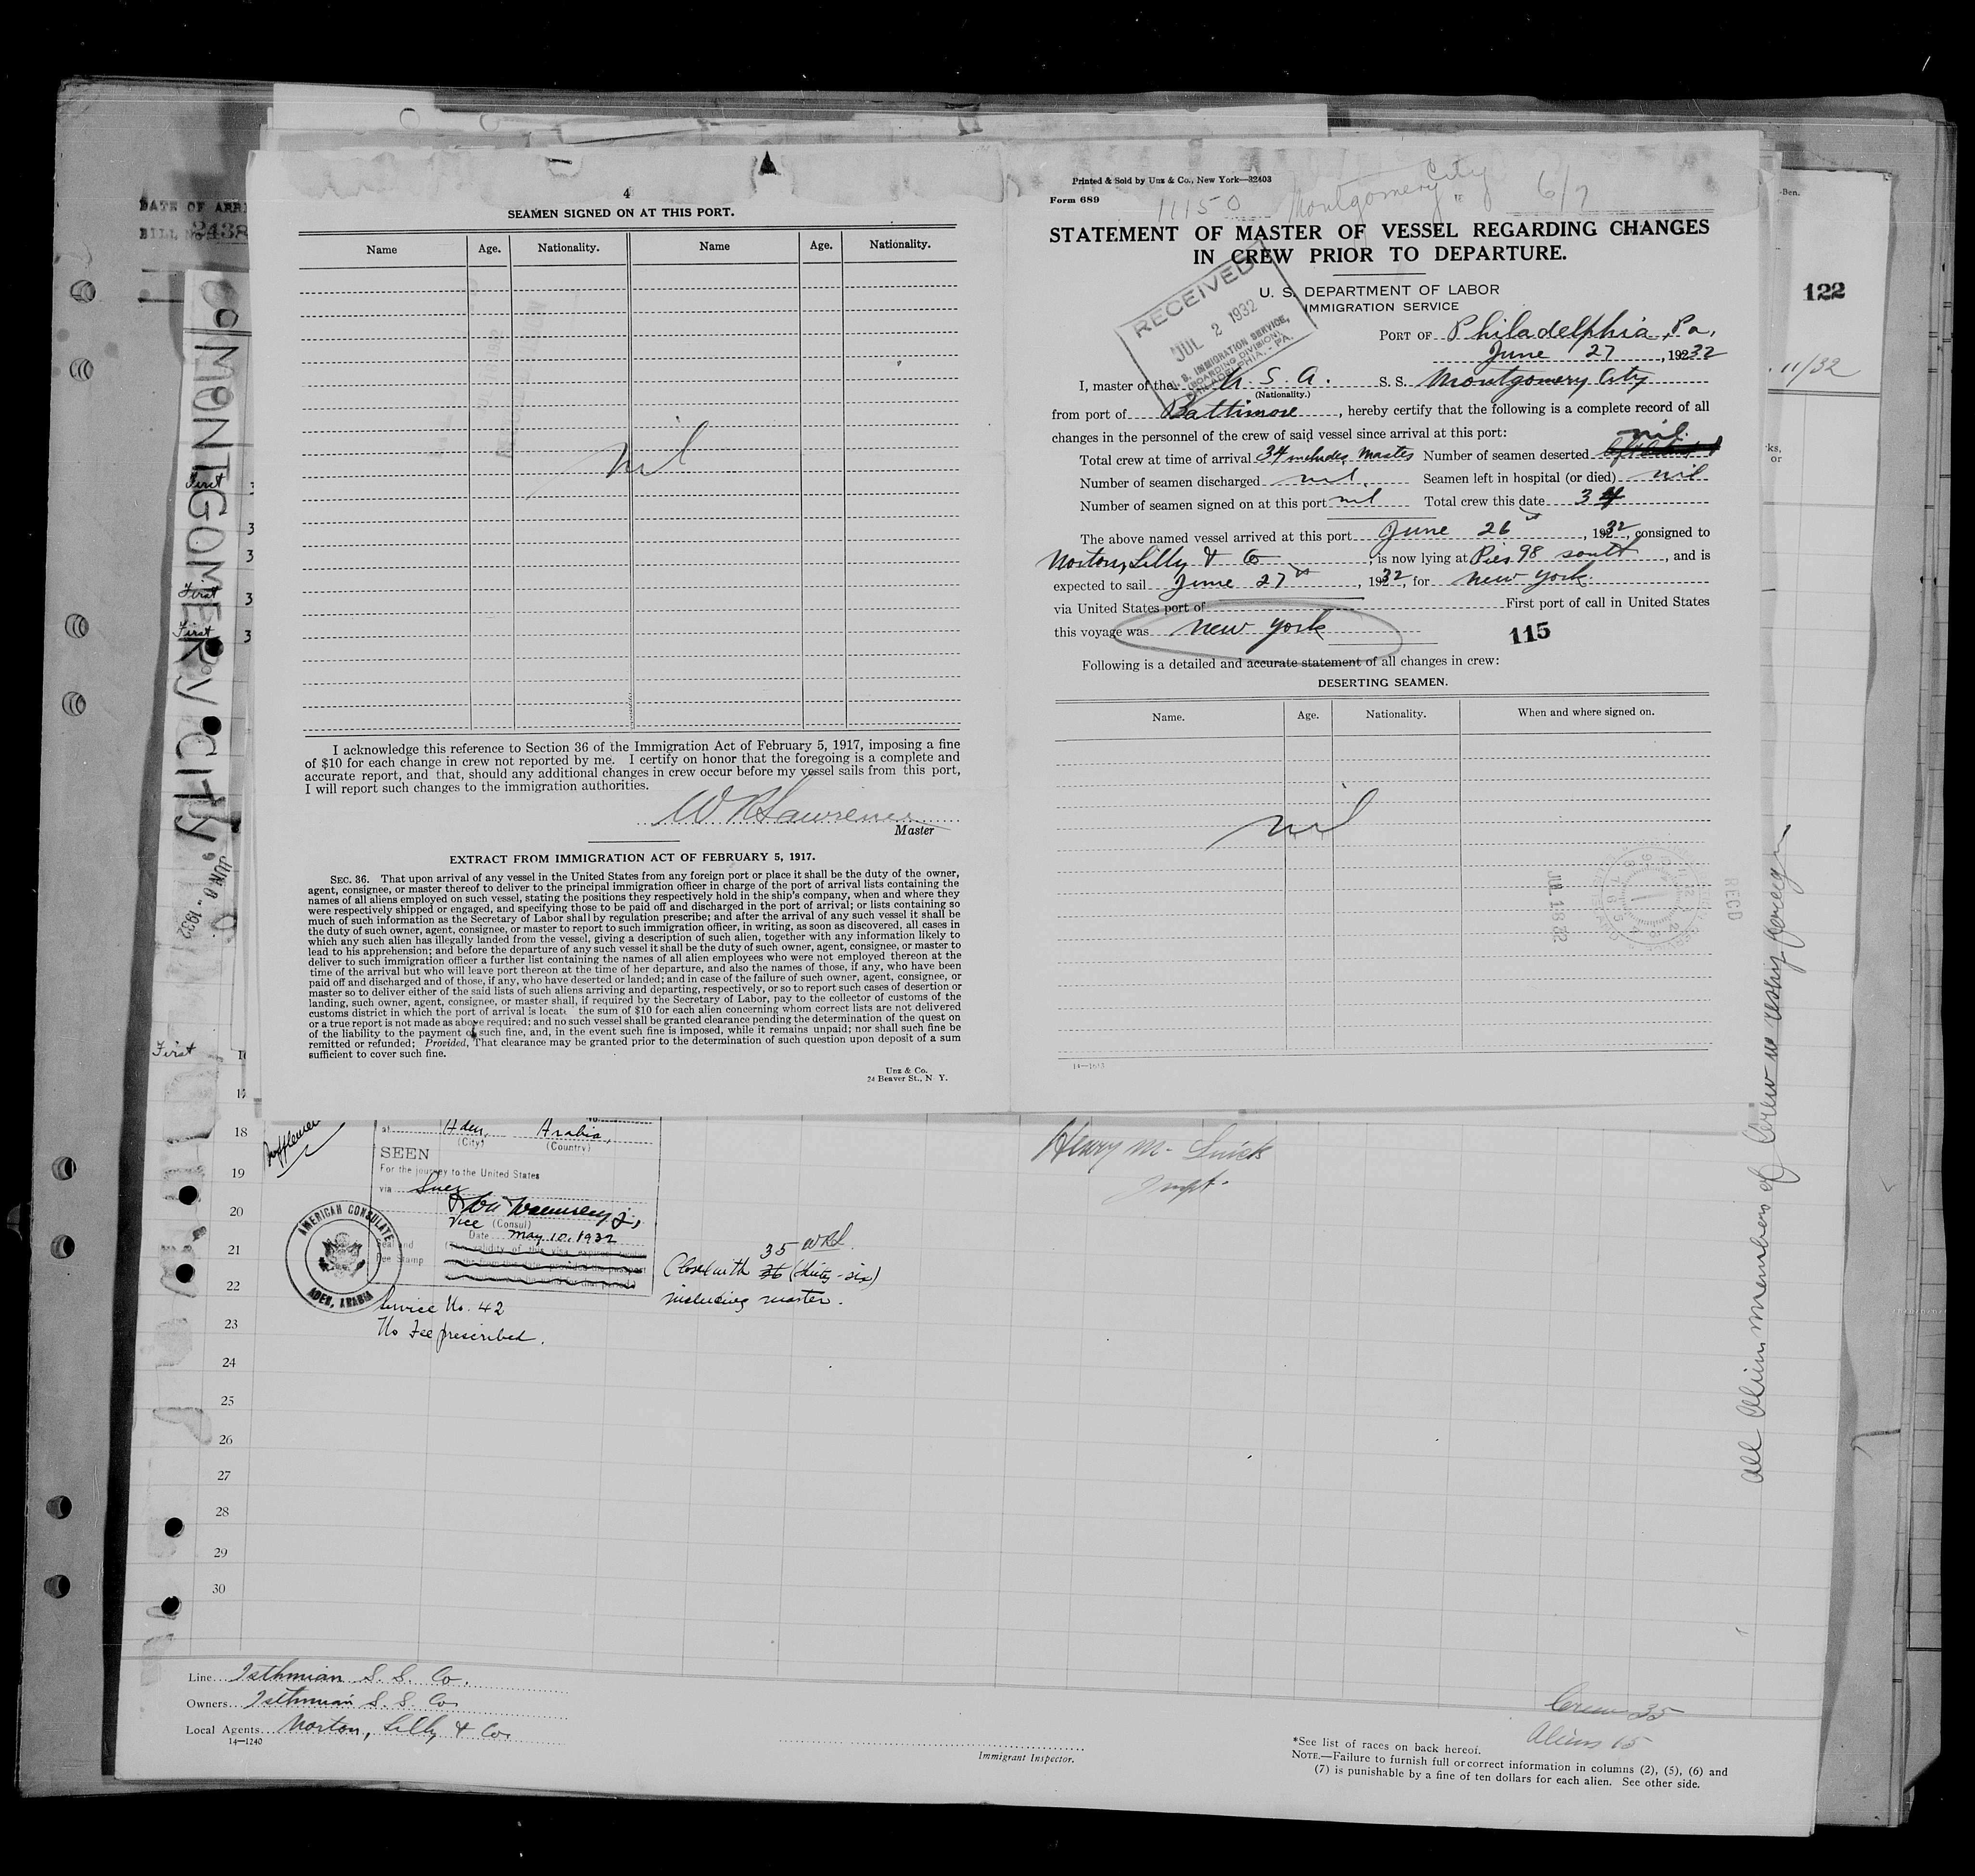 4
SEAMEN SIGNED ON AT THIS PORT.
Name Age. Nationality. Name Age. Nationality.
nil
I acknowledge this reference to Section 36 of the Immigration Act of February 5, 1917, imposing a fine
of $10 for each change in crew not reported by me. I certify on honor that the foregoing is a complete and
accurate report, and that, should any additional changes in crew occur before my vessel sails from this port,
I will report such changes to the immigration authorities.
W R Lawrence
Master
EXTRACT FROM IMMIGRATION ACT OF FEBRUARY 5, 1917.
SEC. 36. That upon arrival of any vessel in the United States from any foreign port or place it shall be the duty of the owner,
agent, consignee, or master thereof to deliver to the principal immigration officer in charge of the port of arrival lists containing the
names of all aliens employed on such vessel, stating the positions they respectively hold in the ship's company, when and where they
were respectively shipped or engaged, and specifying those to be paid off and discharged in the port of arrival; or lists containing so
much of such information as the Secretary of Labor shall by regulation prescribe; and after the arrival of any such vessel it shall be
the duty of such owner, agent, consignee, or master to report to such immigration officer, in writing, as soon as discovered, all cases in
which any such alien has illegally landed from the vessel, giving a description of such alien, together with any information likely to
lead to his apprehension; and before the departure of any such vessel it shall be the duty of such owner, agent, consignee, or master to
deliver to such immigration officer a further list containing the names of all alien employees who were not employed thereon at the
time of the arrival but who will leave port thereon at the time of her departure, and also the names of those, if any, who have been
paid off and discharged and of those, if any, who have deserted or landed; and in case of the failure of such owner, agent, consignee, or
master so to deliver either of the said lists of such aliens arriving and departing, respectively, or so to report such cases of desertion or
landing, such owner, agent, consignee, or master shall, if required by the Secretary of Labor, pay to the collector of customs of the
customs district in which the port of arrival is locate the sum of $10 for each alien concerning whom correct lists are not delivered
or a true report is not made as above required; and no such vessel shall be granted clearance pending the determination of the quest on
of the liability to the payment of such fine, and, in the event such fine is imposed, while it remains unpaid; nor shall such fine be
remitted or refunded; Provided, That clearance may be granted prior to the determination of such question upon deposit of a sum
sufficient to cover such fine.
Unz & Co.
24 Beaver St., N Y.
Printed & Sold by Unz & Co., New York—32403
Form 689
11150 Montgomery City 6/7
STATEMENT OF MASTER OF VESSEL REGARDING CHANGES
IN CREW PRIOR TO DEPARTURE.
U. S. DEPARTMENT OF LABOR
IMMIGRATION SERVICE
RECEIVED
JUL 2 1932
U. S. IMMIGRATION SERVICE,
(BOARDING DIVISION)
PHILADELPHIA, - PA.
PORT OF Philadelphia, Pa.
June 27, 1932
I, master of the U. S. A. S. S. Montgomery City
(Nationality.)
from port of Baltimore, hereby certify that the following is a complete record of all
changes in the personnel of the crew of said vessel since arrival at this port:
Total crew at time of arrival 34 includes Master Number of seamen deserted nil
Number of seamen discharged nil. Seamen left in hospital (or died) nil
Number of seamen signed on at this port nil Total crew this date 34
The above named vessel arrived at this port June 26, 1932, consigned to
Norton, Lilly & Co, is now lying at Pier 98 south, and is
expected to sail June 27th, 1932, for New York.
via United States port of First port of call in United States
this voyage was New York
115
Following is a detailed and accurate statement of all changes in crew:
DESERTING SEAMEN.
Name. Age. Nationality. When and where signed on.
nil
JUL 1 32
RECD
14—1613
DATE OF ARRI
BILL NO 2438
MONTGOMERY CITY
JUN 8 - 1932
First
First
First
First
122
-Ben.
11/32
ks,
or
all Alien members of Crew
18
19
20
21
22
23
24
25
26
27
28
29
30
at Aden, Arabia,
(City) (Country)
SEEN
For the journey to the United States
via Suez
Vice (Consul)
Date May 10, 1932
AMERICAN CONSULATE
ADEN, ARABIA
Seal and
Fee Stamp
Service No. 42
No Fee prescribed.
35 WRL
Closed with 36 (thirty-six)
including master.
Henry M.
Inspt.
Line Isthmian S. S. Co.
Owners Isthmian S. S. Co.
Local Agents Norton, Lilly & Co.
14—1240
Immigrant Inspector.
Crew 35
Aliens 15
*See list of races on back hereof.
NOTE.—Failure to furnish full or correct information in columns (2), (5), (6) and
(7) is punishable by a fine of ten dollars for each alien. See other side.